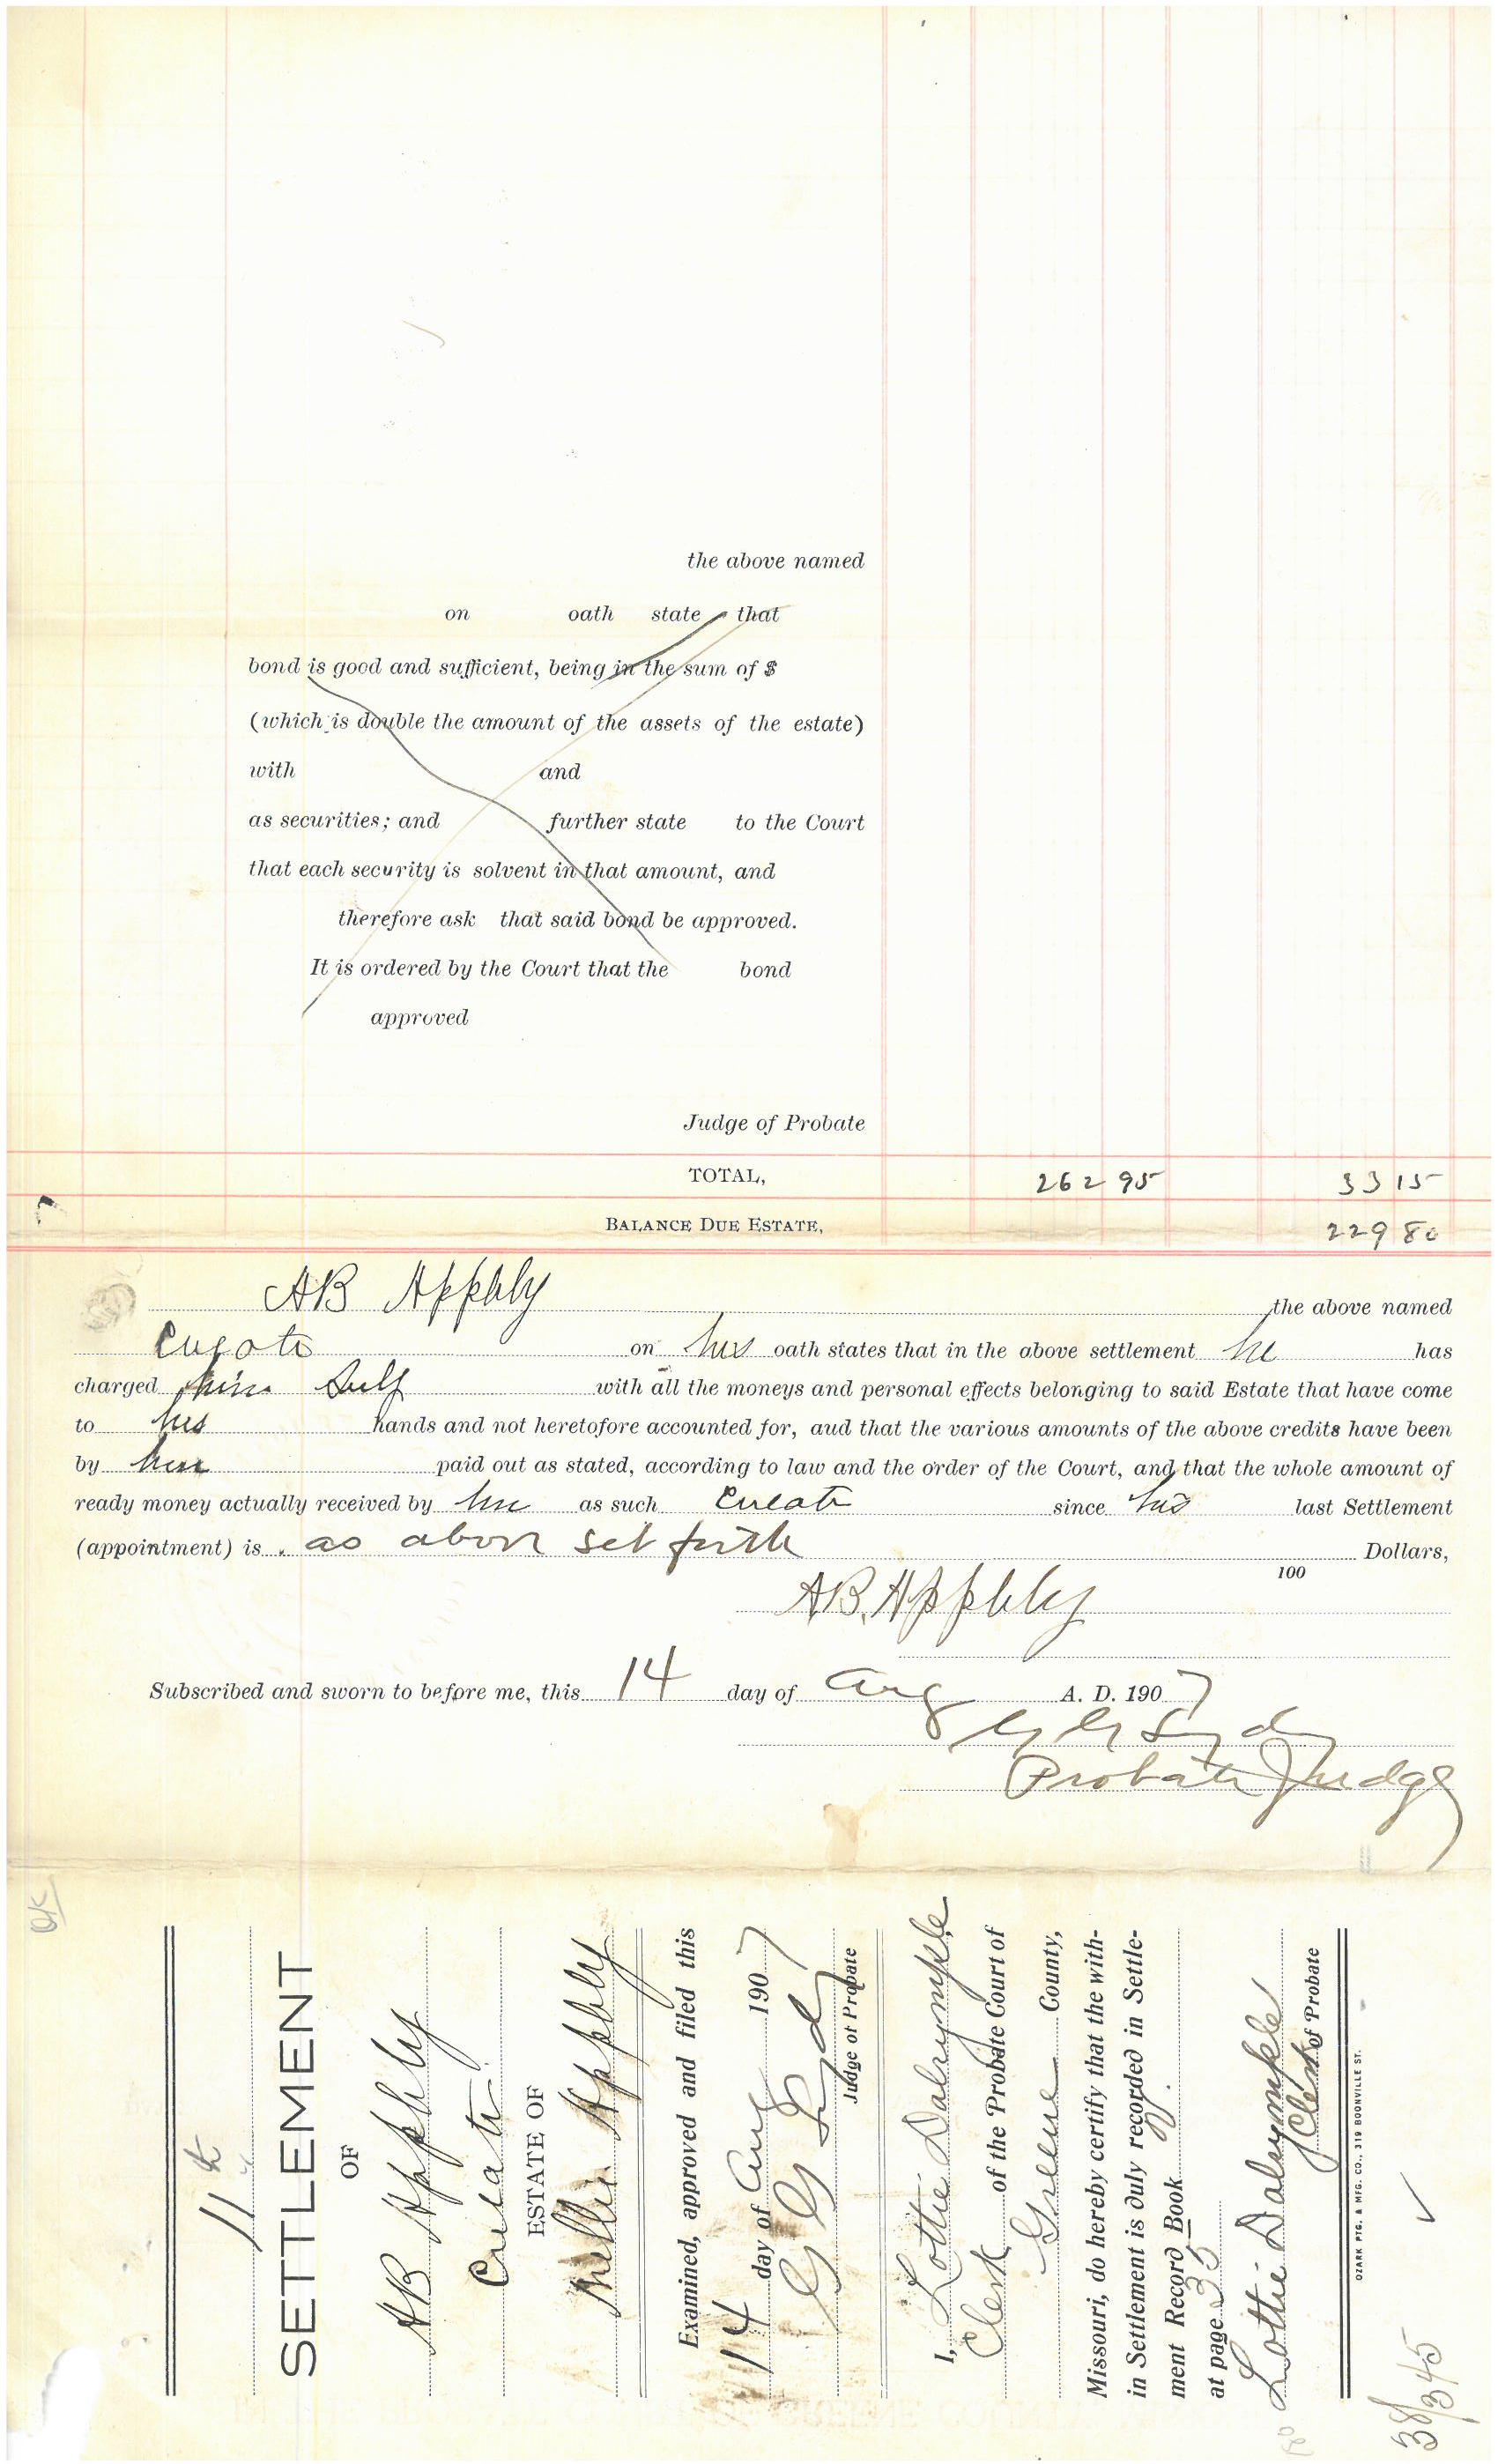 the above named
on oath state that
bond is good and sufficient, being in the sum of $
(which is double the amount of the assets of the estate)
with and
as securities; and further state to the Court
that each security is solvent in that amount, and
therefore ask that said bond be approved.
It is ordered by the Court that the bond
approved
Judge of Probate
TOTAL, 262 95 33 15
BALANCE DUE ESTATE, 229 80
AB Appbly the above named
Curator on his oath states that in the above settlement he has
charged him self with all the moneys and personal effects belonging to said Estate that have come
to his hands and not heretofore accounted for, and that the various amounts of the above credits have been
by him paid out as stated, according to law and the order of the Court, and that the whole amount of
ready money actually received by him as such Curator since his last Settlement
(appointment) is as above set forth Dollars,
100
AB. Appbly
Subscribed and sworn to before me, this 14 day of Aug A. D. 1907
Probate Judge
OK
11th
SETTLEMENT
OF
AB Appbly
Curator
ESTATE OF
Millie Appbly
Examined, approved and filed this
14 day of Aug 1907
Judge of Probate
I, Lottie Dalrymple
Clerk of the Probate Court of
Greene County,
Missouri, do hereby certify that the with-
in Settlement is duly recorded in Settle-
ment Record Book
at page 35
Lottie Dalrymple
Clerk of Probate
OZARK PTG. & MFG. CO., 319 BOONVILLE ST.
38/345